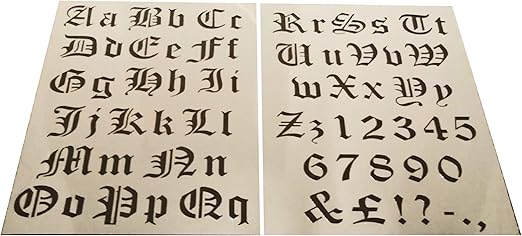 Aa Bb Cc
Dd Ee Ff
Gg Hh Ii
Jj Kk Ll
Mm Nn
Oo Pp Qq
Rr Ss Tt
Uu Vv W
w Xx Yy
Zz 1 2 3 4 5
6 7 8 9 0
& £ ! ? - . ,